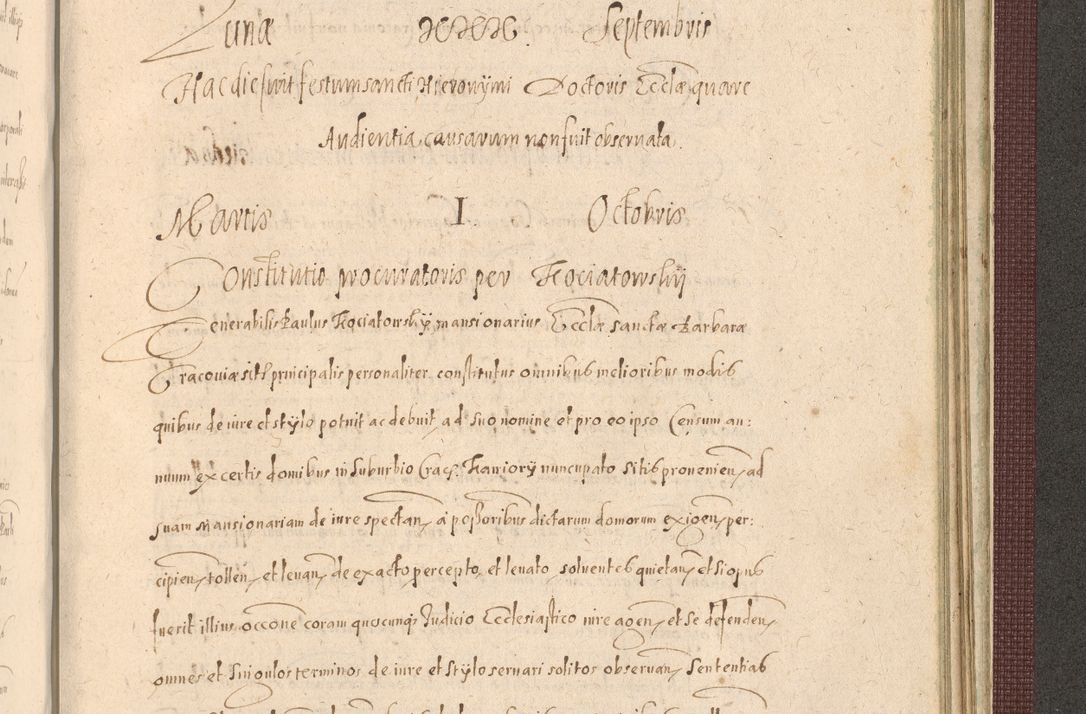 Lunæ XXX. Septembris
Hac die fuit festum sancti Hieronymi Doctoris Ecclæ quare
Audientia causarum non fuit observata.
Martis I Octobris
Constitutio procuratoris per Kociatowskÿ
Venerabilis Paulus Kociatowskÿ mansionarius Ecclæ Sanctæ Barbaræ
Cracoviæ principalis personaliter constitutus omnibus melioribus modis
quibus de iure et stÿlo potuit ac debuit, ad suo nomine et pro eo ipso Censum an:
nuum ex certis domibus in Suburbio Crac. nuncupato sitis provenien, ad
suam Mansionariam de iure spectan, a poßoribus dictarum domorum exigen, per:
cipien, tollen, et levan, de exacto, percepto, et levato, solventes quietan, et si opus
fuerit illius occone coram quocunq Judicio Ecclesiastico iure agen, et se defenden,
omnes et singulos terminos de iure et stÿlo servari solitos observan, Sententias